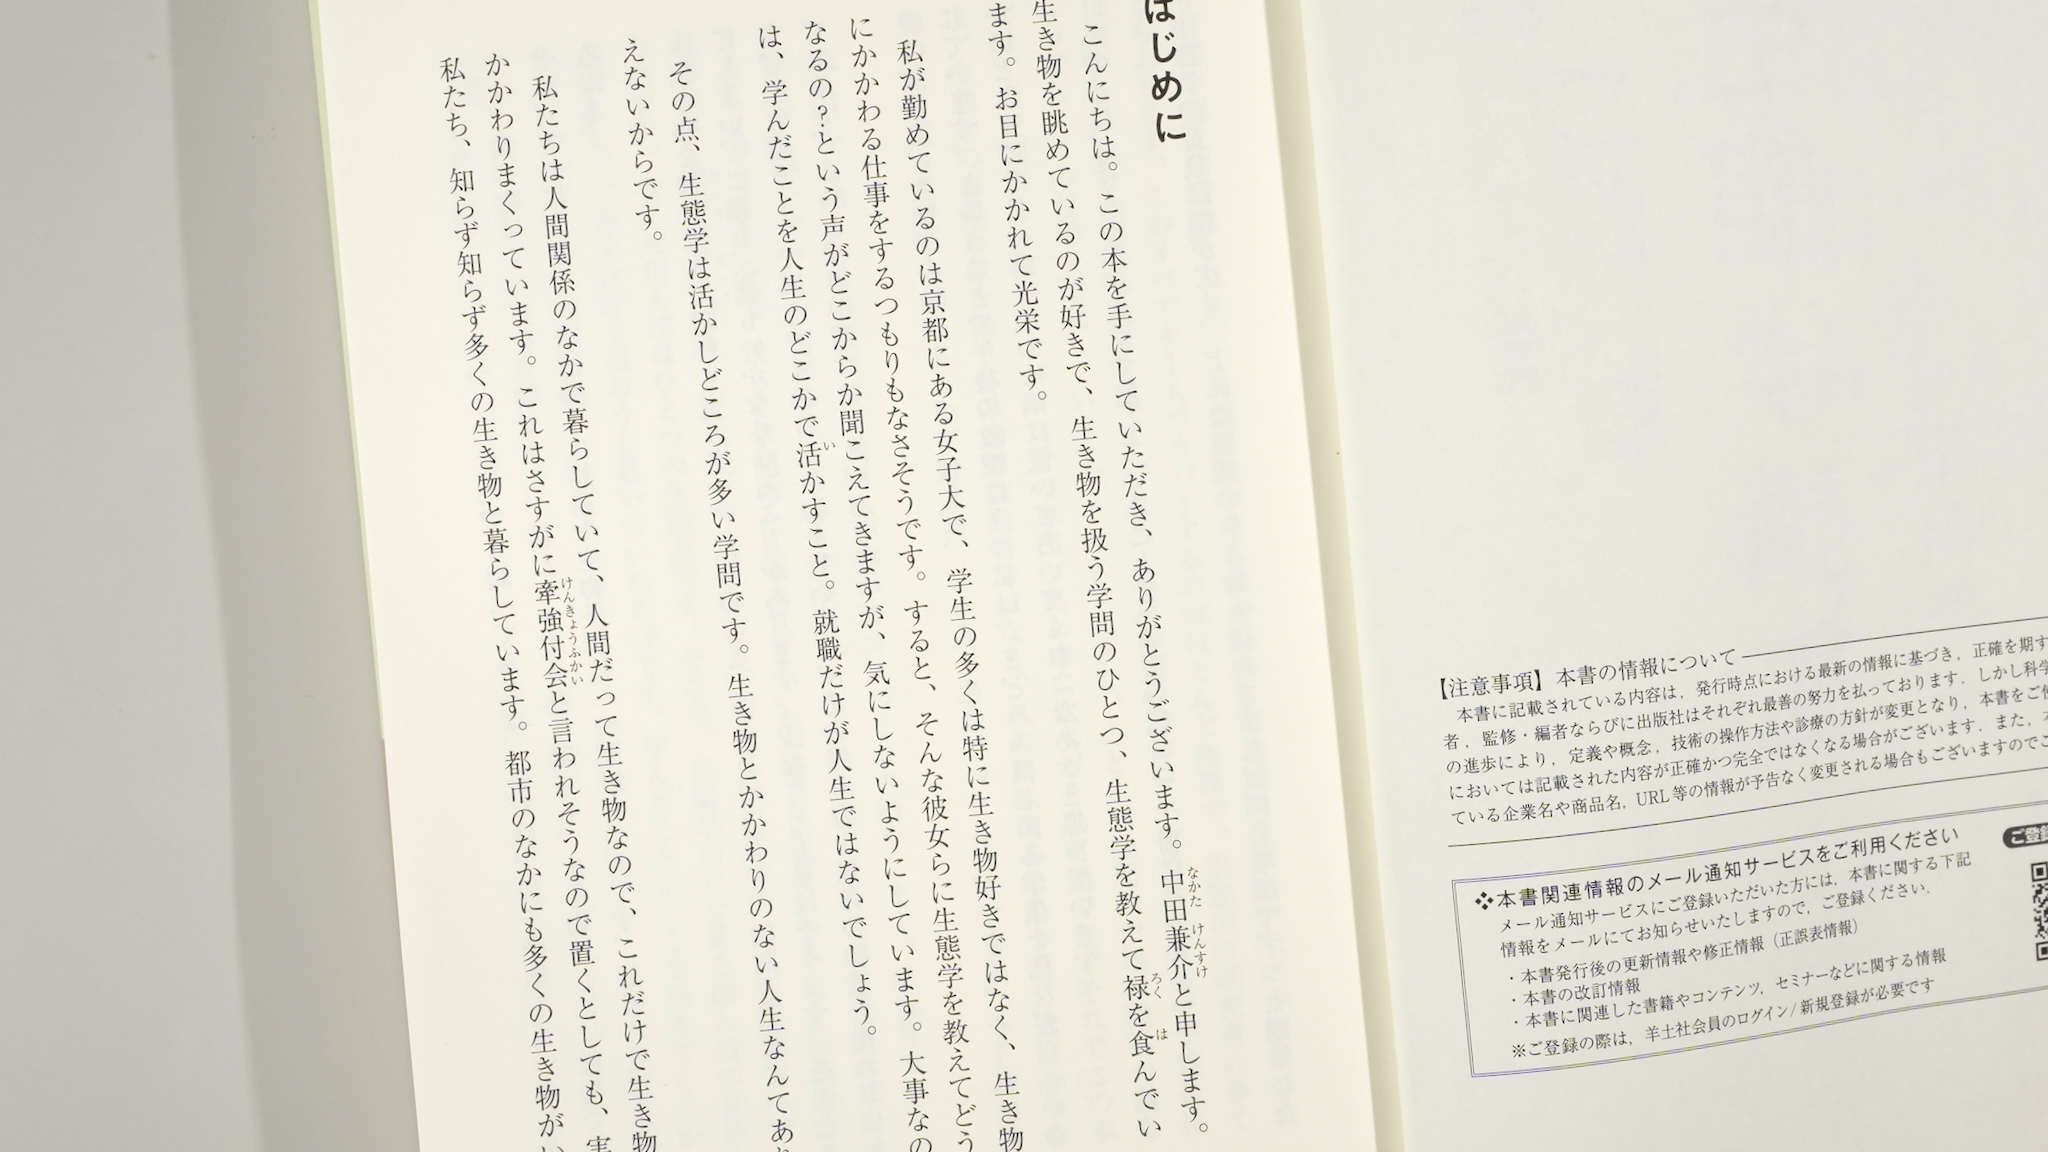 はじめに
こんにちは。この本を手にしていただき、ありがとうございます。中田兼介と申します。
生き物を眺めているのが好きで、生き物を扱う学問のひとつ、生態学を教えて禄を食んでい
ます。お目にかかれて光栄です。
私が勤めているのは京都にある女子大で、学生の多くは特に生き物好きではなく、生き物
にかかわる仕事をするつもりもなさそうです。すると、そんな彼女らに生態学を教えてどう
なるの？という声がどこからか聞こえてきますが、気にしないようにしています。大事なの
は、学んだことを人生のどこかで活かすこと。就職だけが人生ではないでしょう。
その点、生態学は活かしどころが多い学問です。生き物とかかわりのない人生なんてあり
えないからです。
私たちは人間関係のなかで暮らしていて、人間だって生き物なので、これだけで生き物
かかわりまくっています。これはさすがに牽強付会と言われそうなので置くとしても、実
私たち、知らず知らず多くの生き物と暮らしています。都市のなかにも多くの生き物がい
なかた けんすけ
ろく
は
い
けんきょうふかい
【注意事項】本書の情報について
本書に記載されている内容は，発行時点における最新の情報に基づき，正確を期す
者，監修・編者ならびに出版社はそれぞれ最善の努力を払っております．しかし科学
の進歩により，定義や概念，技術の操作方法や診療の方針が変更となり，本書をご使
においては記載された内容が正確かつ完全ではなくなる場合がございます．また，本
ている企業名や商品名，URL等の情報が予告なく変更される場合もございますのでご
❖本書関連情報のメール通知サービスをご利用ください
メール通知サービスにご登録いただいた方には，本書に関する下記
情報をメールにてお知らせいたしますので，ご登録ください．
・本書発行後の更新情報や修正情報（正誤表情報）
・本書の改訂情報
・本書に関連した書籍やコンテンツ，セミナーなどに関する情報
※ご登録の際は，羊土社会員のログイン/新規登録が必要です
ご登録